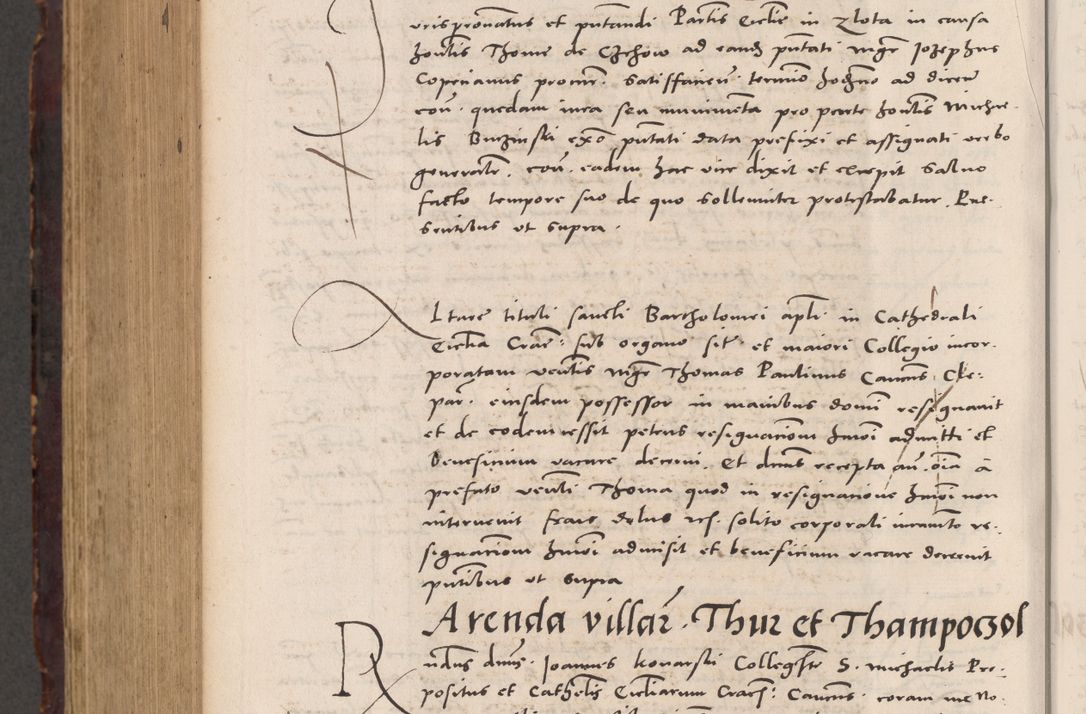 vrisp̄ronatus et pn̄tandi Partis Ecclie in Zlota in causa
hon̄lis Thome de Czchow ad eand̄ pn̄tati Mgr̄ Jozephus
Coprianus procur̄. Satisfaneū. termīo hodn̄o ad dicen̄
con̄. quedam iura seu munimēta pro parte hon̄lis Micha-
lis Buzinski exō pn̄tati data prefixi et assignati verbo
generale. con̄. eadem hac vice dixit et excepit Saluo
facto tempore suo de quo sollemniter protestabatur. Pre-
sentibus vt supra.
Lture tituli sancti Bartholomei apl̄i in Cathedrali
Ecclia Crac̄: sub organo sit̄ et maiori Collegio incor-
poratam ven̄lis Mgr̄ Thomas Paulinus Canc̄us Cle-
par̄. eiusdem possessor in manibus domī resignauit
et de eodem cessit petens resignacionem hm̄oi admitti et
Beneficium vacare decerni. Et dn̄us recepta an̄. oīa a
prefato ven̄li Thoma quod in resignacione hm̄oi non
interuenit fraus dolus etc. solito corporali iuramēto re-
signacionem hm̄oi admisit et beneficium vacare decreuit
pn̄tibus vt supra
Arenda villar̄. Thur et Thampoczol
R n̄dus dn̄us. Joannes Konarski Collegiate S. Michaelis Pre-
positus et Cathēlis Eccliarum Crac̄: Canc̄us. coram me No-